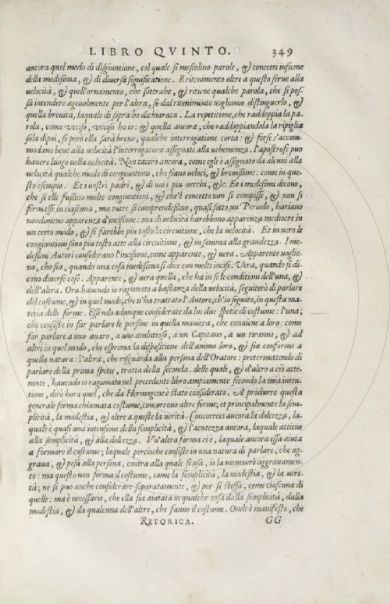 LIBRO QVINTO. 349
ancora quel modo di disgiuntione, col quale si mescolino parole, & concetti insieme
della medesima, & di diuersa significatione. Il ritenimento oltre a questo serue alla
velocità, & quell'ornamento, che sottrahe, & ritiene qualche parola, che si pos-
sa intendere ageuolmente per l'altra, se dal ritenimento vogliamo distinguerlo, &
quella breuità, laquale di sopra ho dichiarata. La repetitione, che raddoppia la pa-
rola, come vcciso, vcciso ho io: & quella ancora, che raddoppiandola la ripiglia
sola dipoi, se però ella sarà breue, qualche interrogatione corta: & forse s'acco-
modano bene alla velocità l'interrogationi assegnate alla vehemenza. L'apostrofe può
hauere luogo nella velocità. Non tacerò ancora, come egli è assegnato da alcuni alla
velocità qualche modo di congiuntioni, che siano veloci, & breuissime: come in que-
sto esempio. Et i nostri padri, & di noi i piu vecchi, &c. Et i medesimi dicono,
che se elle fussino molte congiuntioni, & che'l concetto non si compisse, & non si
fermasse in ciascuna, ma tutte si comprendessino, quasi sotto un Periodo, hariano
nondimeno apparenza d'incisione: ma di velocità harebbono apparenza mediocre in
un certo modo, & si farebbe piu tosto la circuitione, che la velocità. Et in uero le
congiuntioni sono piu tosto atte alla circuitione, & in somma alla grandezza. I me-
desimi Autori considerano l'incisione, come apparente, & vera. Apparente voglio-
no, che sia, quando una cosa medesima si dice con molti incisi. Vera, quando si di-
cono diuerse cose. Apparente, & vera quella, che ha in se le conditioni dell'una, &
dell'altra. Ora hauendo io ragionato a bastanza della velocità, seguiterò di parlare
del costume, & in quel modo, che n'ha trattato l'Autore, ch'io seguito, in questa ma-
teria delle forme. Essendo adunque considerate da lui due spetie di costume: l'una;
che consiste in far parlare le persone in quella maniera, che conuiene a loro: come
far parlare a uno auaro, a uno ambitioso, a un Capitano, a un tiranno, & ad
altri in quel modo, che esprima la dispositione dell'animo loro, & sia conforme a
quella natura: l'altra, che risguarda alla persona dell'Oratore: pretermettendo di
parlare della prima spetie, tratta della seconda. delle quali, & d'altro a ciò atte-
nente, hauendo io ragionato nel precedente libro ampiamente secondo la mia inten-
tione, dirò hora quel, che da Hermogene è stato considerato. A produrre questa
generale forma chiamata costume, concorrono altre forme; et principalmente la sim-
plicità, la modestia, & oltre a queste la uerità. Concorreci ancora la dolcezza, la-
quale è quasi una intensione della simplicità, & l'acutezza ancora, laquale attiene
alla simplicità, & alla dolcezza. Vn'altra forma ci è, laquale ancora essa aiuta
a formare il costume; laquale percioche consiste in una natura di parlare, che ag-
graua, & pesa alla persona, contra alla quale si usa, io la nominerò aggrauamen-
to: ma questo non forma il costume, come la semplicità, la modestia, & la ueri-
tà; ne si può anche considerare separatamente, & per se stessa, come ciascuna di
quelle: ma è necessario, che ella sia aiutata in qualche cosa dalla simplicità, dalla
modestia, & da qualcuna dell'altre, che fanno il costume. Onde è manifesto, che
RETORICA. GG